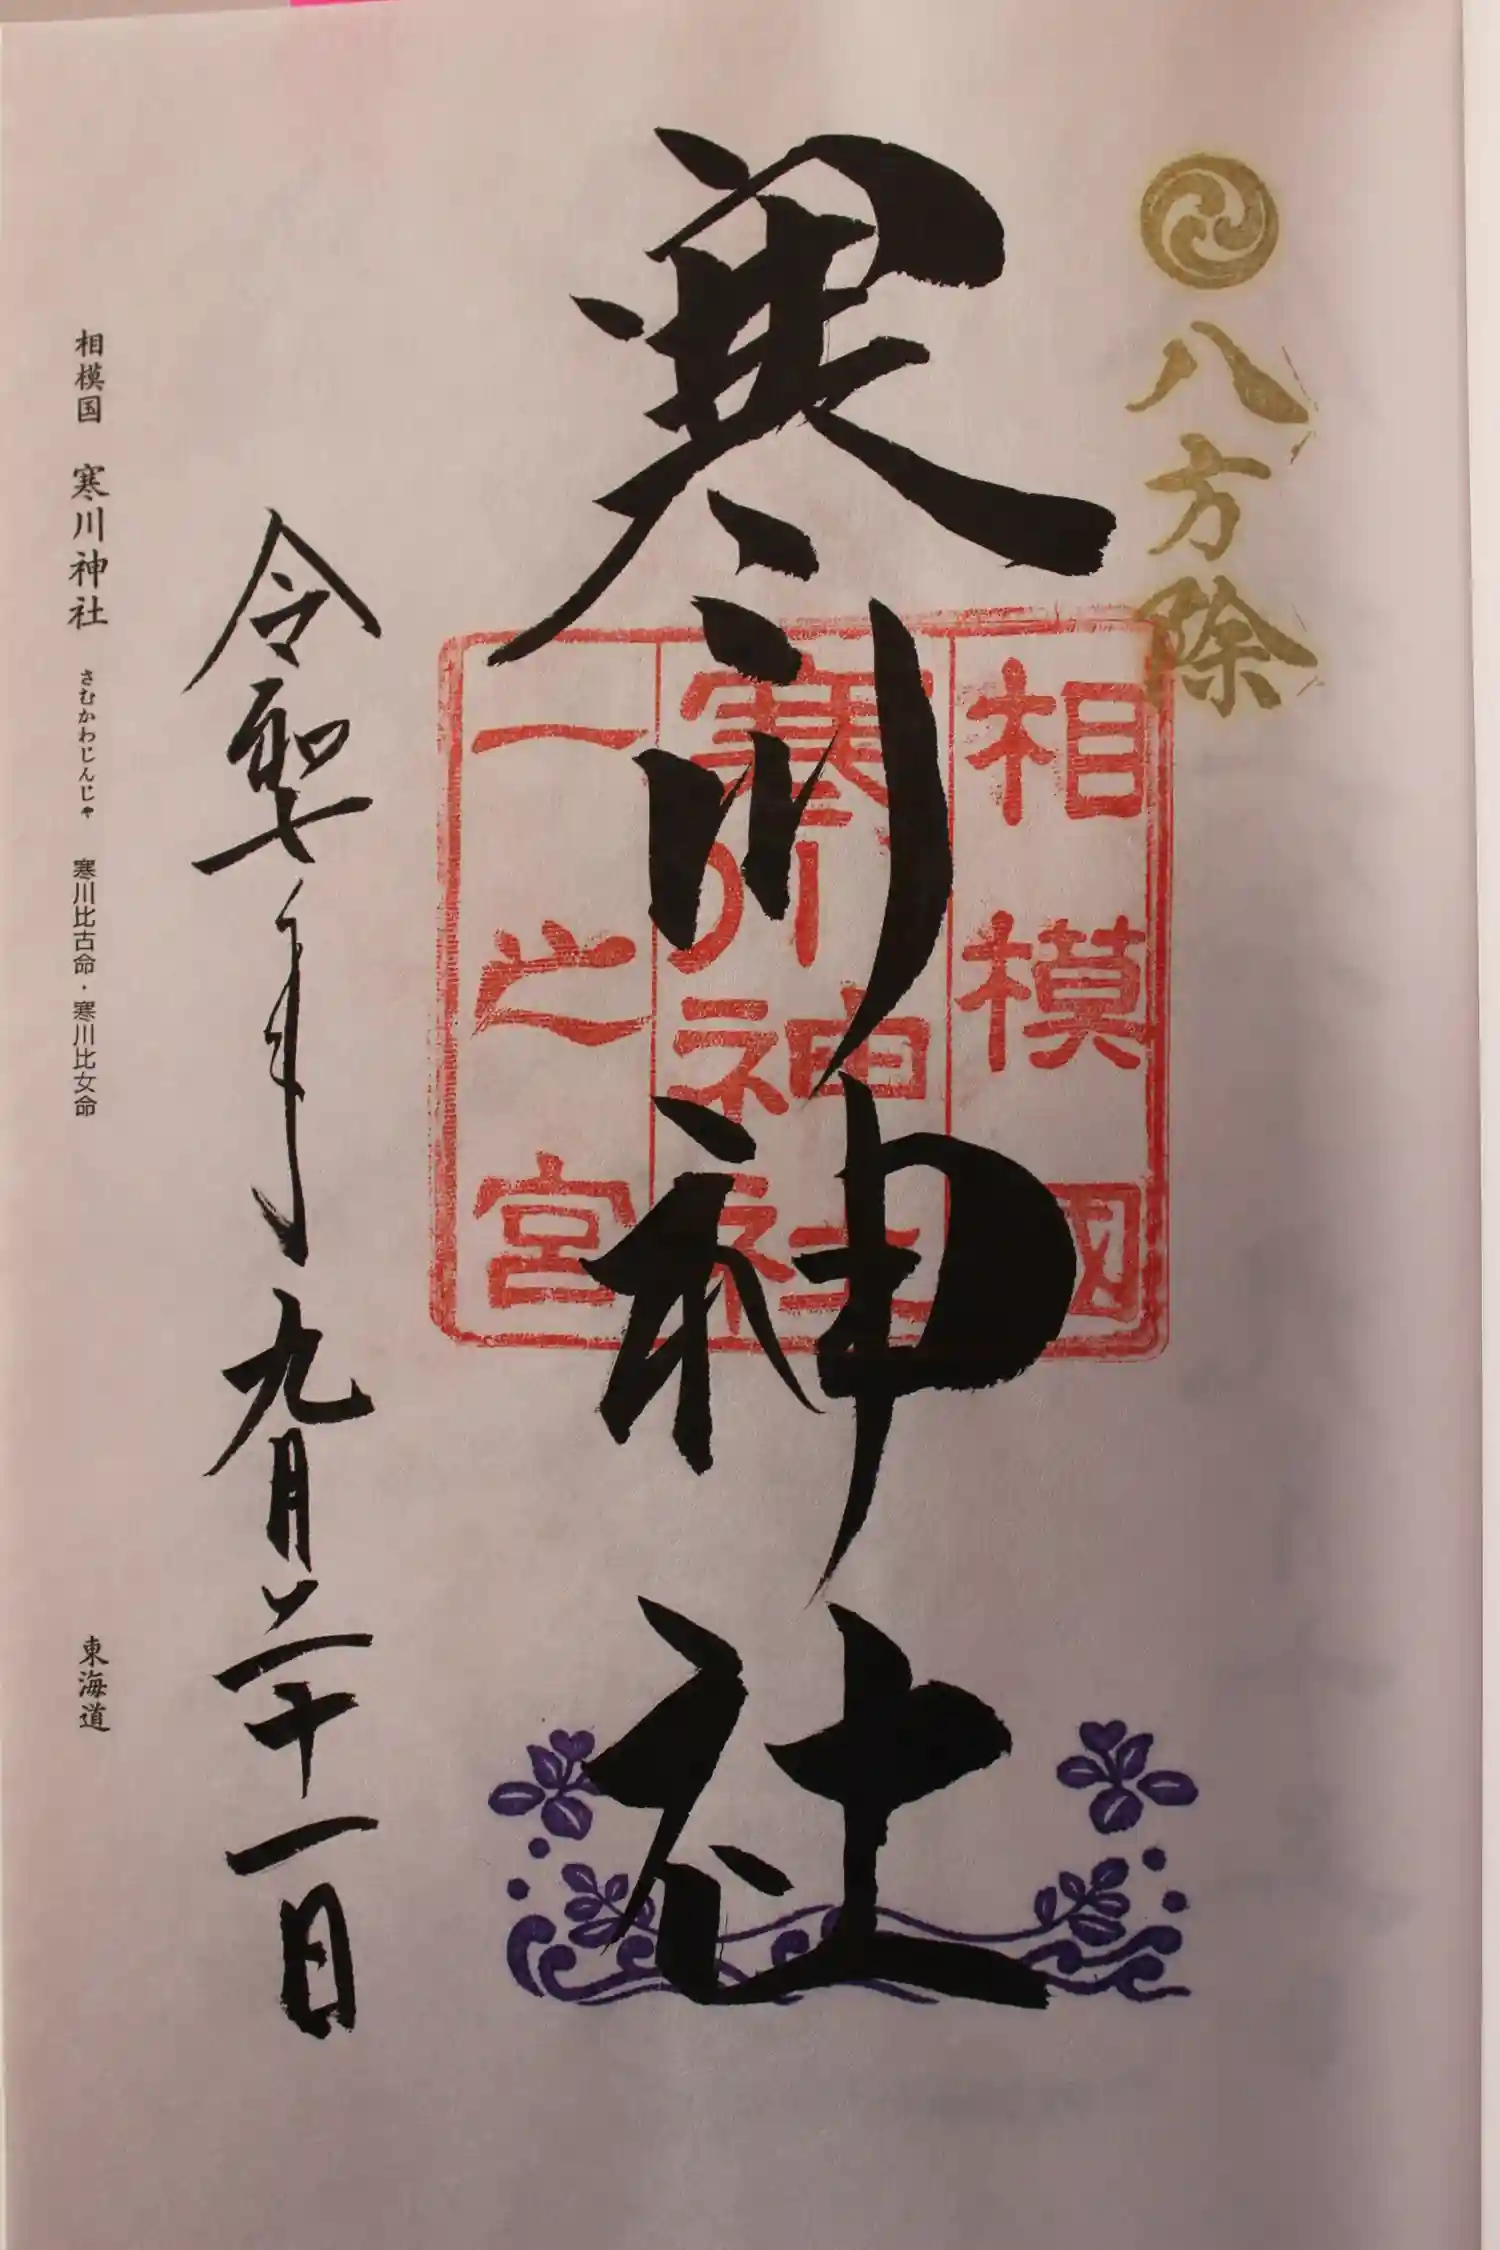 八方除
寒川神社
相模國
寒川神社
一之宮
令和七年九月二十一日
相模国 寒川神社 さむかわじんじゃ 寒川比古命・寒川比女命 東海道